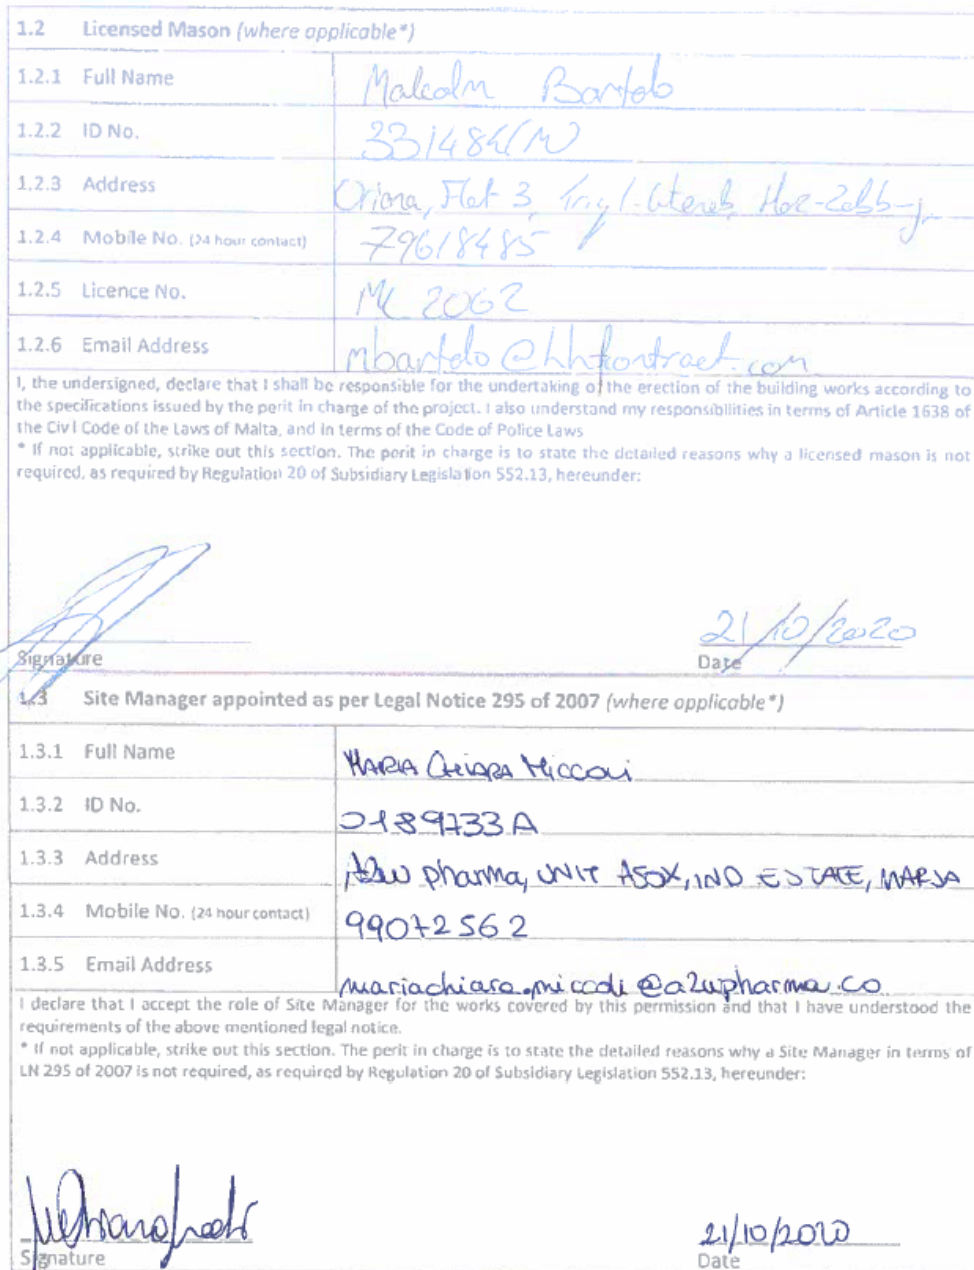 1.2 Licensed Mason (where applicable*)
1.2.1 Full Name Malcolm Bartolo
1.2.2 ID No. 331484(M)
1.2.3 Address Oriana, Flat 3, Triq l- Haz-Zebb-j
1.2.4 Mobile No. (24 hour contact) 79618485
1.2.5 Licence No. MC 2062
1.2.6 Email Address mbartolo@hhkontract.com
I, the undersigned, declare that I shall be responsible for the undertaking of the erection of the building works according to
the specifications issued by the perit in charge of the project. I also understand my responsibilities in terms of Article 1638 of
the Civil Code of the Laws of Malta, and in terms of the Code of Police Laws
* If not applicable, strike out this section. The perit in charge is to state the detailed reasons why a licensed mason is not
required, as required by Regulation 20 of Subsidiary Legislation 552.13, hereunder:
21/10/2020
Signature Date
1.3 Site Manager appointed as per Legal Notice 295 of 2007 (where applicable*)
1.3.1 Full Name MARIA CHIARA MICCOLI
1.3.2 ID No. 0189733A
1.3.3 Address pharma, UNIT A50X, IND ESTATE, MARSA
1.3.4 Mobile No. (24 hour contact) 99072562
1.3.5 Email Address mariachiara.miccoli@a2wpharma.co
I declare that I accept the role of Site Manager for the works covered by this permission and that I have understood the
requirements of the above mentioned legal notice.
* If not applicable, strike out this section. The perit in charge is to state the detailed reasons why a Site Manager in terms of
LN 295 of 2007 is not required, as required by Regulation 20 of Subsidiary Legislation 552.13, hereunder:
21/10/2020
Signature Date